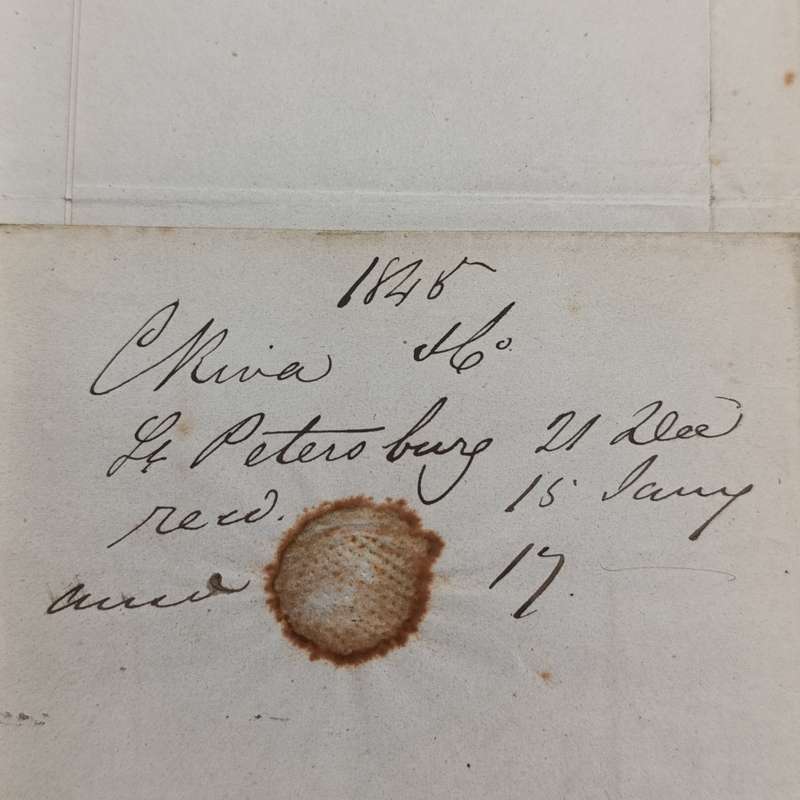 1845
C Riva & Co
St Petersburg 21 Dec
recd. 15 Jany
answd 17.